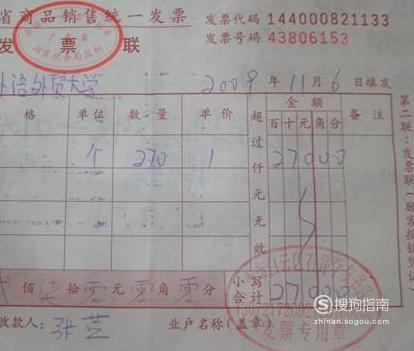 省商品销售统一发票 发票代码 144000821133
发票联 发票号码 43806153
外语外贸大学 2009年11月6日填发
格 单位 数量 单价 超过仟元无效 金额 备注
百十元角分
个 270 1 27000
佰柒拾零元零角零分 小写合计 27000
收款人: 张芝 业户名称(盖章)
发票专用章
第二联:发票联
搜狗指南
zhinan.sogou.com